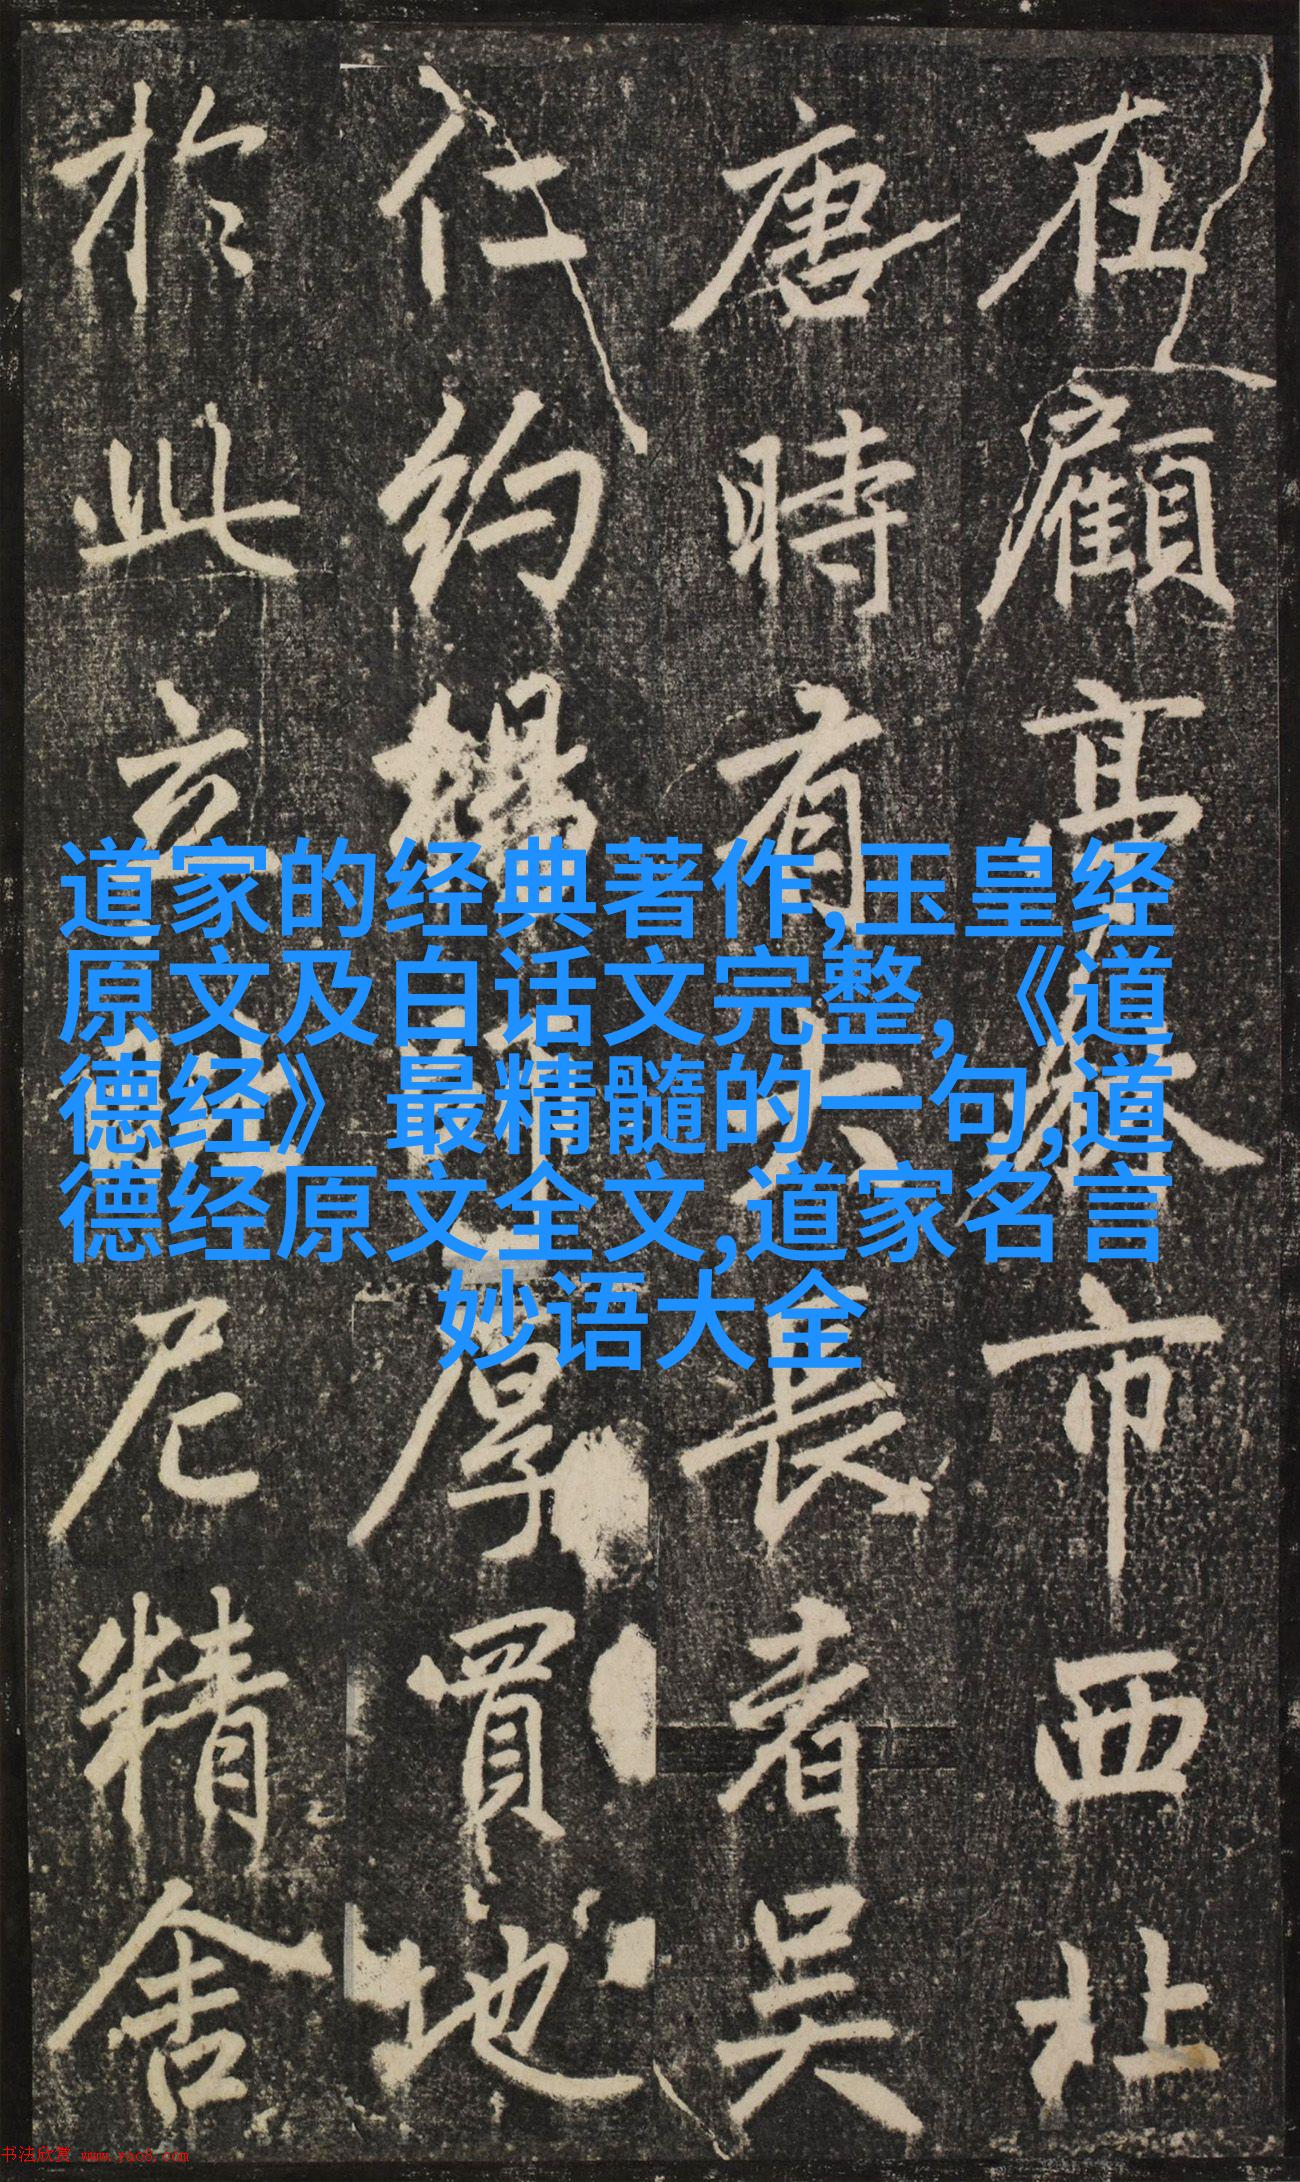 在顧亭林市西北
唐時有長者吳
仁約厚買地
於此立尼精舍
道家的经典著作,玉皇经
原文及白话文完整,《道
德经》最精髓的一句,道
德经原文全文,道家名言
妙语大全
书法欣赏 www.yac8.com